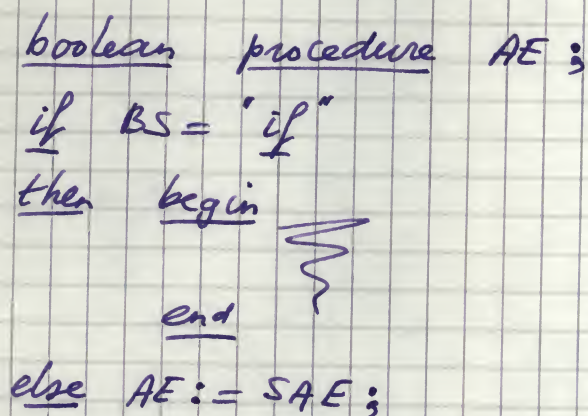 boolean procedure AE ;
if BS = "if"
then begin
end
else AE := SAE ;